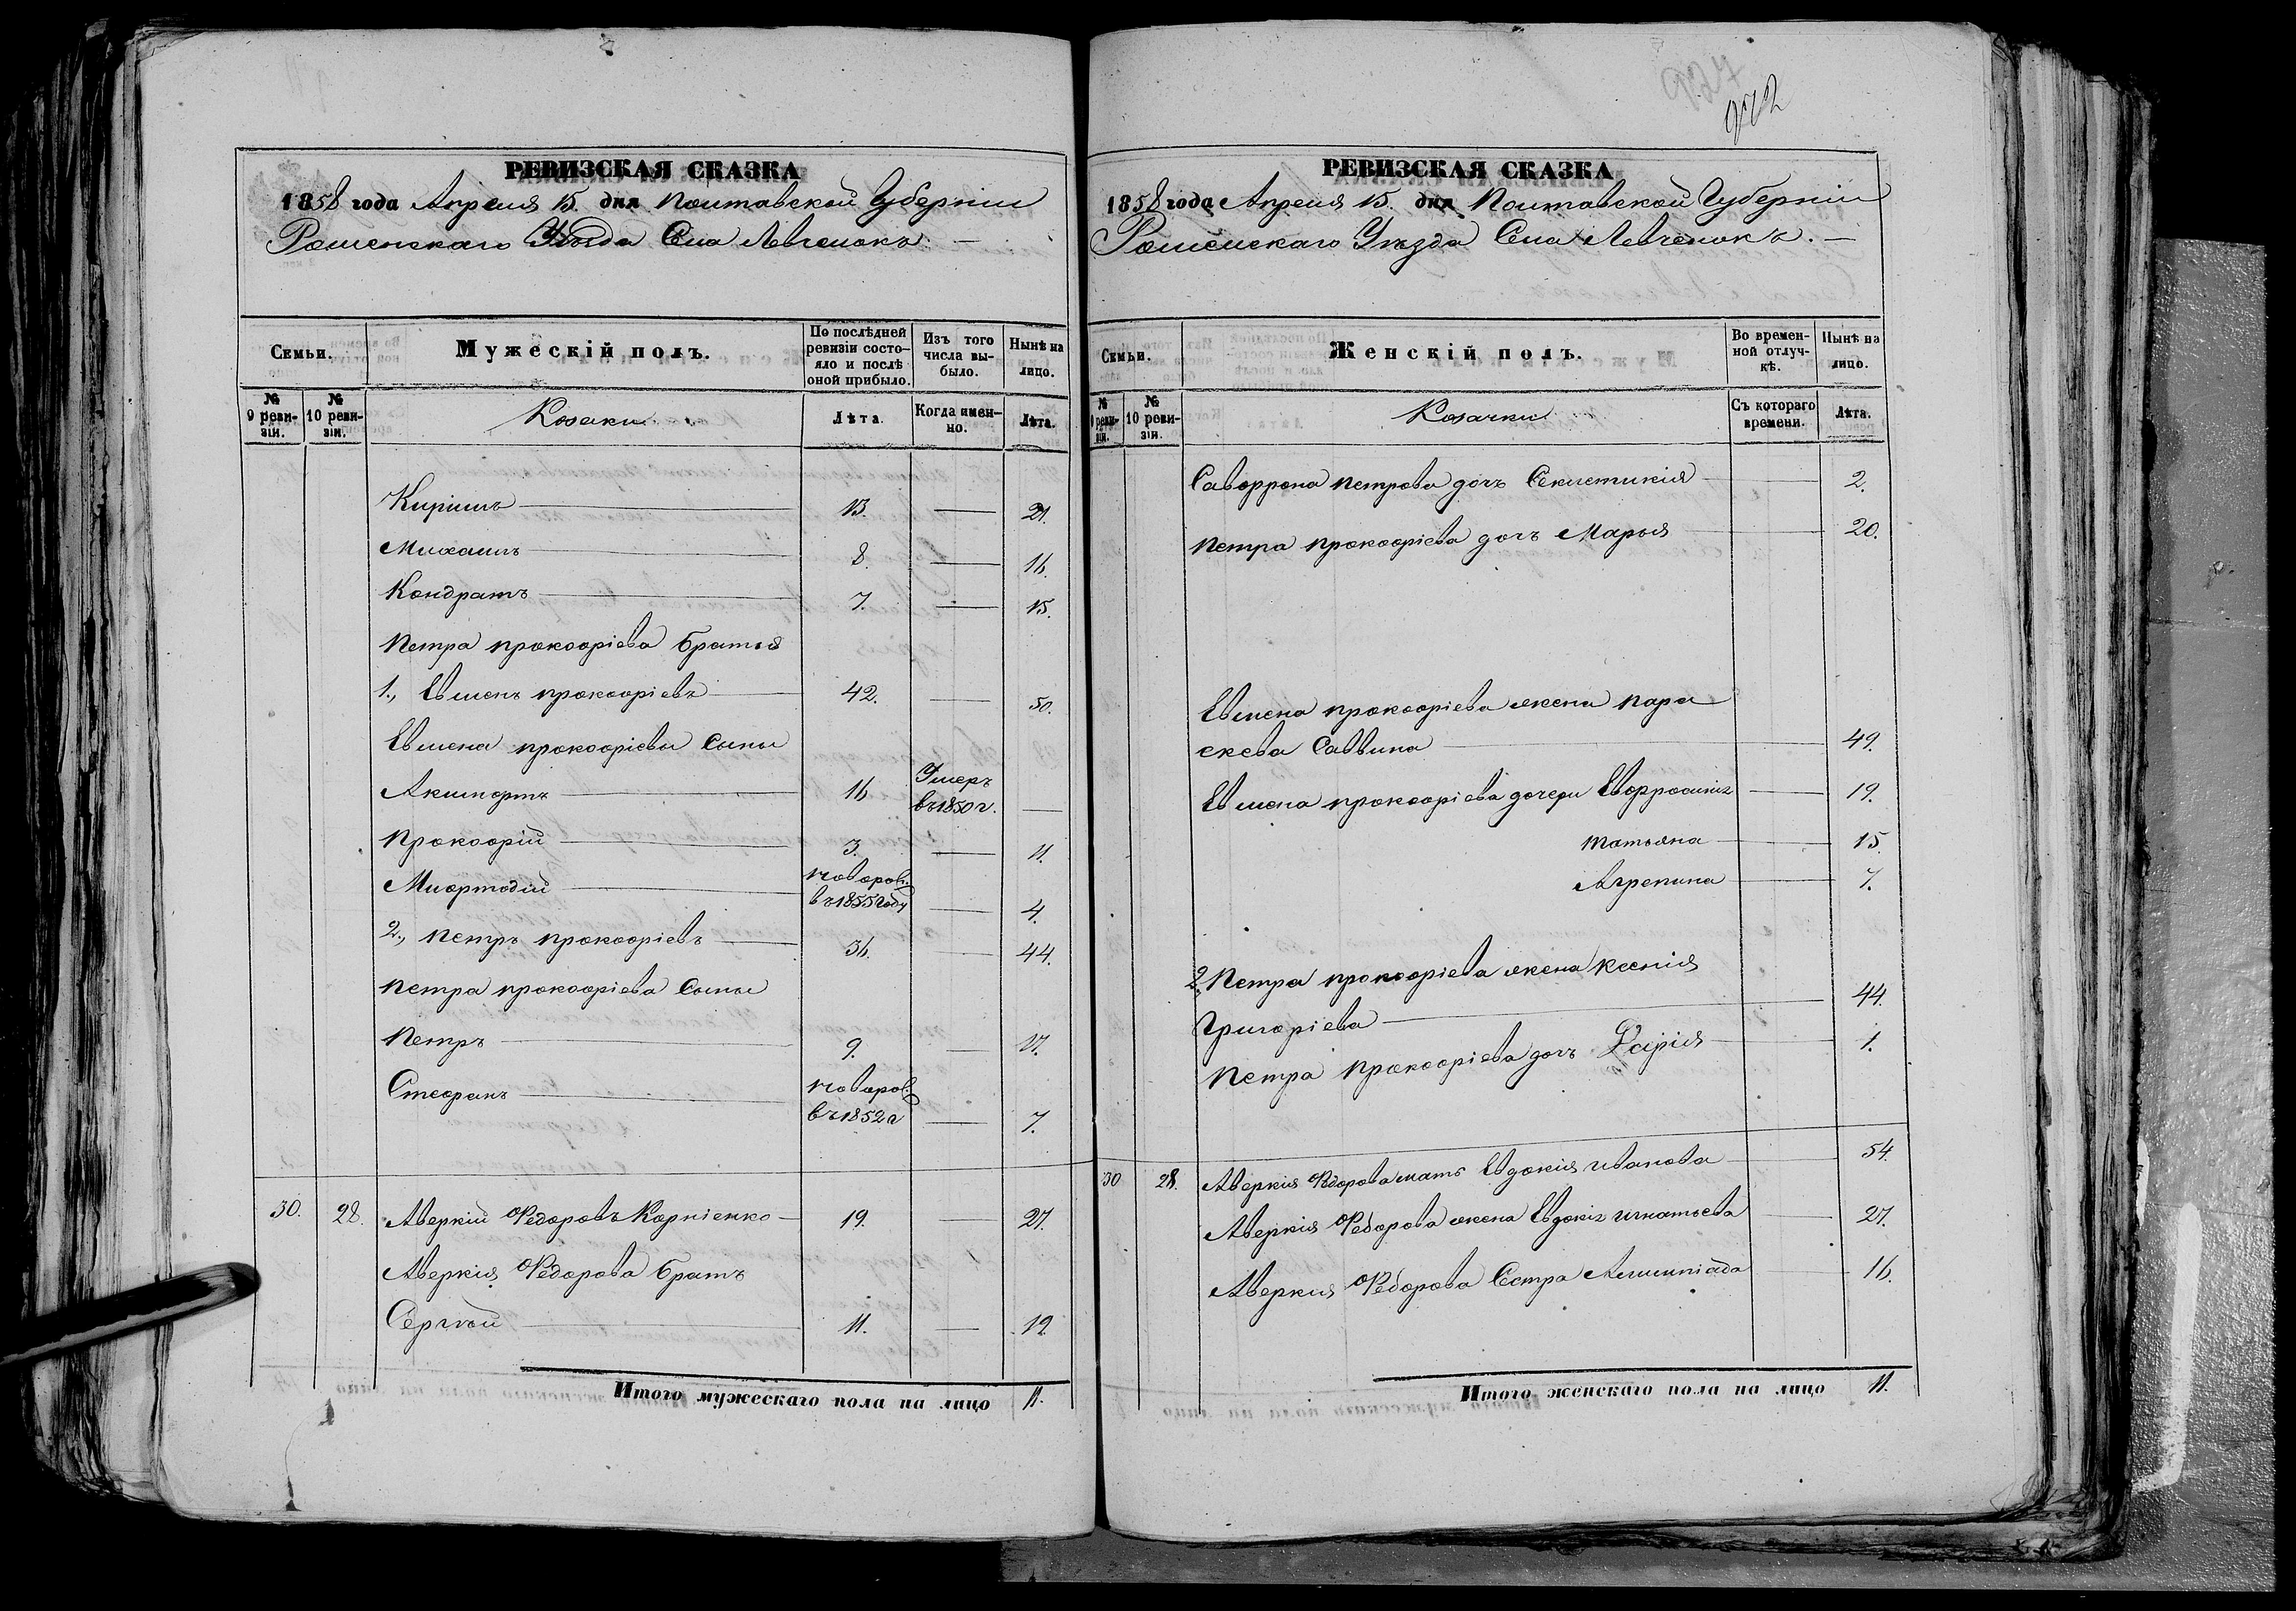 РЕВИЗСКАЯ СКАЗКА
1858 года Апреля 15. дня Полтавской Губерніи
Роменскаго Уѣзда Села Левченокъ. —
Семьи.
Мужескій полъ.
По послѣдней ревизіи состояло и послѣ оной прибыло.
Изъ того числа выбыло.
Нынѣ на лицо.
№ 9 ревизіи.
№ 10 ревизіи.
Козаки
Лѣта.
Когда именно.
Лѣта.
Кирилъ — 13. — 21.
Михаилъ — 8. — 16.
Кондратъ — 7. — 15.
Петра Прокофіева братья
1., Евменъ Прокофіевъ — 42. — 50.
Евмена Прокофіева сыны
— 16 Умеръ въ 1850 г. —
Прокофій — 3. — 11.
Мифтодій — Новорож. въ 1855 году — 4.
2., Петръ Прокофіевъ — 36. — 44.
Петра Прокофіева сыны
Петръ — 9. 17.
Стефанъ — Новорож. въ 1852 г — 7.
30. 28. Аверкій Федоровъ Корніенко — 19. — 27.
Аверкія Федорова братъ
Сергѣй — 11. — 19.
Итого мужескаго пола на лицо 11.
РЕВИЗСКАЯ СКАЗКА
1858 года Апреля 15. дня Полтавской Губерніи
Роменскаго Уѣзда Села Левченокъ. —
Семьи.
Женскій полъ.
Во временной отлучкѣ.
Нынѣ на лицо.
№ 9 ревизіи.
№ 10 ревизіи.
Козачки
Съ котораго времени.
Лѣта.
Саворрона Петрова дочь Секлетикія — 2.
Петра Прокофіева дочь Марья — 20.
Евмена Прокофіева жена Пара
скева Саввина — 49.
Евмена Прокофіева дочери Евфросинія — 19.
Татьяна — 15.
Агрепина — 7.
2., Петра Прокофіева жена Ксенія
Григоріева — 44.
Петра Прокофіева дочь — 1.
30 28. Аверкія Федорова мать Евдокія Иванова — 54.
Аверкія Федорова жена Евдокія Игнатьева — 27.
Аверкія Федорова сестра Алимпіада — 16.
Итого женскаго пола на лицо 11.